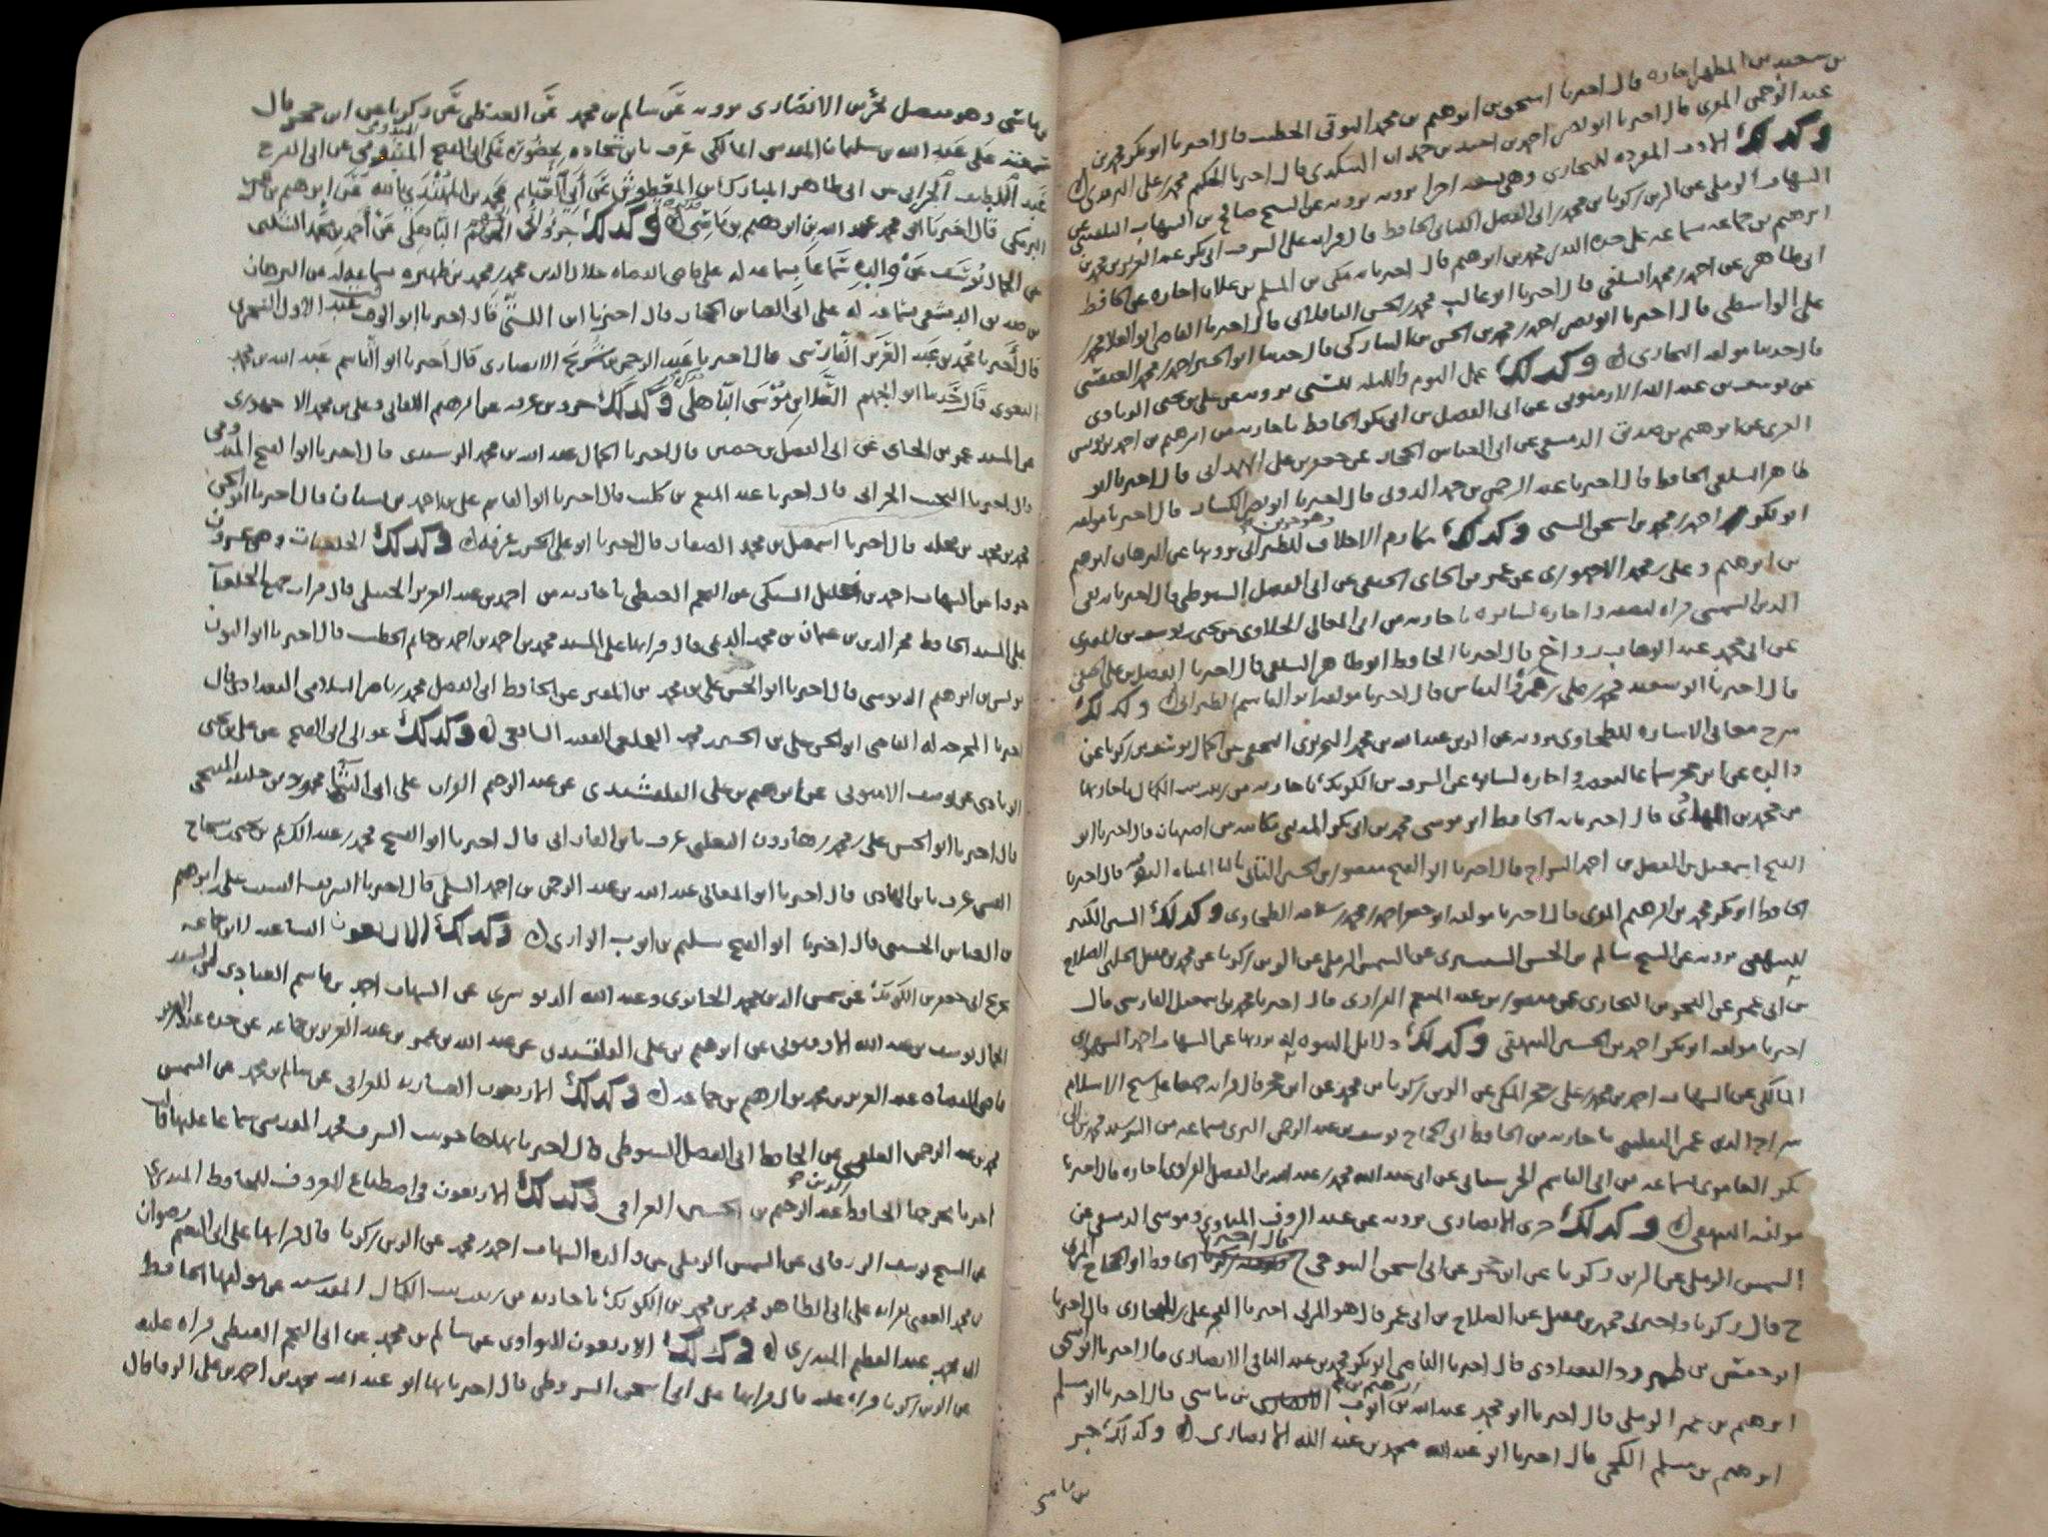 بن سعيد بن المطهر اجازه قال اخبرنا اسحق بن ابرهيم بن محمد النوقى الخطيب قال اخبرنا ابو بكر محمد بن
عبد الرحمن المقرى قال اخبرنا ابو نصر احمد بن احمد بن حمدان السكندى قال اخبرنا الحكيم محمد بن على الترمذى
وكذلك الادب المفرد للبخارى وهى تسعه اجزا نرويه عن الشيخ صالح بن الشهاب البلقينى عن
الشهاب الرملى عن الزين زكريا بن محمد عن ابى الفضل الكنانى الحافظ قال قراته على الشرف ابى بكر عبد العزيز بن محمد بن
ابرهيم بن جماعه سماعه على جده البدر محمد بن ابرهيم قال اخبرنا به مكى بن المسلم بن علان اجازه عن الحافظ
ابى طاهر عن احمد بن محمد السلفى قال اخبرنا ابو غالب محمد بن الحسن الباقلانى قال اخبرنا القاضى ابو العلا محمد بن
على الواسطى قال اخبرنا ابو نصر احمد بن محمد بن الحسن بن النيازكى قال حدثنا ابو الخير احمد بن محمد العبقسى
قال حدثنا مولفه البخارى وكذلك عمل اليوم والليله للسنى نرويه عن على بن يحيى الزيادى
عن يوسف بن عبد الله الارميونى عن ابى الفضل بن ابى بكر الحافظ باجازته من ابرهيم بن احمد بن يونس
الغزى عن ابرهيم بن صدقه الدمشقى عن ابى العباس الحجار عن جعفر بن على الهمدانى قال اخبرنا ابو
طاهر السلفى الحافظ قال اخبرنا عبد الرحمن بن حمد الدونى قال اخبرنا ابو نصر الكسار قال اخبرنا مولفه
ابو بكر احمد بن محمد بن اسحق السنى وكذلك مكارم الاخلاق للطبرانى وهو جزين نرويها عن البرهان ابرهيم
بن ابرهيم وعلى بن محمد الاجهورى عن عمر بن الجاى الحنفى عن ابى الفضل السيوطى قال اخبرنا به تقى
الدين الشمنى قراه لبعضه واجازه لسايره باجازته من ابى المعالى الحلاوى عن يحيى بن يوسف بن المصرى
عن ابى محمد عبد الوهاب رواج قال اخبرنا الحافظ ابو طاهر السلفى قال اخبرنا الفضل بن على الحنفى
قال اخبرنا ابو سعيد محمد بن على بن عمرو النقاش قال اخبرنا مولفه ابو القاسم الطبرانى وكذلك
شرح معانى الاثار للطحاوى نرويه عن الزين عبد الله بن محمد النحريرى الحنفى عن الجمال يوسف بن زكريا عن
والده عن ابن حجر سماعا لبعضه واجازه لسايره عن الشرف بن الكويك باجازته من زينب بنت الكمال باجازتها
من محمد بن الهادى قال اخبرنا به الحافظ ابو موسى محمد بن ابى بكر المدينى مكاتبه من اصبهان قال اخبرنا ابو
الفتح اسمعيل بن الفضل بن احمد السراج قال اخبرنا ابو الفتح منصور بن الحسين التانى بالتا المثناه الفوقيه قال اخبرنا
الحافظ ابو بكر محمد بن ابرهيم المقرى قال اخبرنا مولفه ابو جعفر احمد بن محمد بن سلامه الطحاوى وكذلك السنن الكبير
للبيهقى نرويه عن الشيخ سالم بن الحسن الشبشيرى عن الشمس الرملى عن الزين زكريا عن محمد بن مقبل الحلبى الصلاح
بن ابى عمر عن الفخر بن البخارى عن منصور بن عبد المنعم الفراوى قال اخبرنا محمد بن اسمعيل الفارسى قال
اخبرنا مولفه ابو بكر احمد بن الحسين البيهقى وكذلك دلايل النبوه له نرويها عن الشهاب احمد السنهورى
المالكى عن الشهاب احمد بن محمد بن على بن حجر المكى عن الزين زكريا بن محمد عن ابن حجر قال قراته جميعا على شيخ الاسلام
سراج الدين عمر البلقينى باجازته من الحافظ ابى الحجاج يوسف بن عبد الرحمن المزى بسماعه من الرشيد محمد بن ابى
بكر العامرى بسماعه من ابى القاسم الحرستانى عن ابى عبد الله محمد بن الفضل الفراوى اجازه قال اخبرنا
مولفه البيهقى وكذلك جزء الانصارى نرويه عن عبد الروف المناوى وموسى الدمشقى عن
الشمس الرملى عن الزين زكريا عن ابن حجر عن ابى اسحق التنوخى ح قال اخبرنا الحافظ ابو الحجاج المزى
ح قال زكريا واخبرنى محمد بن مقبل عن الصلاح بن ابى عمر قال هو والمزى اخبرنا الفخر على بن البخارى قال اخبرنا
ابو حفص بن طبرزد البغدادى قال اخبرنا القاضى ابو بكر محمد بن عبد الباقى الانصارى قال اخبرنا ابو اسحق
ابرهيم بن عمر البرمكى قال اخبرنا ابو محمد عبد الله بن ابرهيم بن ايوب بن ماسى قال اخبرنا ابو مسلم
ابرهيم بن مسلم الكجى قال اخبرنا ابو عبد الله محمد بن عبد الله الانصارى وكذلك جزء
بن ماسى
بن ماسى وهو متصل بجزء الانصارى نرويه عن سالم بن محمد عن الغيطى عن زكريا عن ابن حجر قال
سمعته على عبد الله بن سليمان المقدسى المالكى عرف بابن شحاده بحضوره على ابى الفتح الميدومى عن ابى الفرج
عبد اللطيف الحرانى عن ابى طاهر المبارك بن المعطوش عن ابى الغنايم محمد بن المهتدى بالله عن ابرهيم بن عمر
البرمكى قال اخبرنا ابو محمد عبد الله بن ابرهيم بن ماسى وكذلك جزء ابى الجهم الباهلى عن احمد بن محمد الشلبى
عن الجمال يوسف عن والده سماعا بسماعه له على قاضى القضاه جلال الدين محمد بن محمد بن ظهيره بسماعه له عن البرهان
بن صديق الدمشقى بسماعه له على ابى العباس الحجار قال اخبرنا ابن اللتى قال اخبرنا ابو الوقت عبد الاول السجزى
قال اخبرنا محمد بن عبد العزيز الفارسى قال اخبرنا عبد الرحمن بن شريح الانصارى قال اخبرنا ابو القاسم عبد الله بن محمد
البغوى قال حدثنا ابو الجهم العلا بن موسى الباهلى وكذلك جزء بن عرفه عن ابرهيم اللقانى وعلى بن محمد الاجهورى
عن المسند عمر بن الجاى عن ابى الفضل بن حصين قال اخبرنا الجمال عبد الله بن محمد الرشيدى قال اخبرنا ابو الفتح الميدومى
قال اخبرنا النجيب الحرانى قال اخبرنا عبد المنعم بن كليب قال اخبرنا ابو القاسم على بن احمد بن بيان قال اخبرنا ابو الحسن
محمد بن محمد بن مخلد قال اخبرنا اسمعيل بن محمد الصفار قال اخبرنا ابو على الحسن بن عرفه وكذلك الخلعيات وهى عشرون
جزوا عن الشهاب احمد بن خليل السبكى عن النجم الغيطى باجازته من احمد بن عبد العزيز الحنبلى قال قرات جميع الخلعيات
على المسند الحافظ فخر الدين بن عثمان بن محمد الديمى قال قراتها على المسند محمد بن احمد بن احمد بن حاتم الخطيب قال اخبرنا ابو النون
يونس بن ابرهيم الدبوسى قال اخبرنا ابو الحسن على بن محمد بن المقير عن الحافظ ابى الفضل محمد بن ناصر السلامى البغدادى قال
اخبرنا المخرجه له القاضى ابو الحسن على بن الحسين بن محمد الخلعى الفقيه الشافعى وكذلك عوالى ابى الفتح عن على بن يحيى
الزيادى عن يوسف الارميونى عن ابرهيم بن على القلقشندى عن عبد الرحيم الفرات على ابى الثنا محمود بن خليفه المنبجى
قال اخبرنا ابو الحسن على بن محمد بن هارون الثعلبى عرف بابن القارى قال اخبرنا ابو الفتح محمد بن عبد الكريم بن يحيى بن سجاح
القيسى عرف بابن الهادى قال اخبرنا ابو المعالى عبد الله بن عبد الرحمن بن احمد السلمى قال اخبرنا الشريف النسيب على بن ابرهيم
بن العباس الحسينى قال اخبرنا ابو الفتح سليم بن ايوب الرازى وكذلك الاربعون التساعيه لابن جماعه
تخريج ابى جعفر بن الكويك عن شمس الدين محمد الحانوتى وعبد الله الدنوشرى عن الشهاب احمد بن قاسم العبادى عن السيد
الجمال يوسف بن عبد الله الارميونى عن ابرهيم بن على القلقشندى عن عبد الله بن عمر بن عبد العزيز بن جماعه عن جده عبد العزيز
قاضى القضاه عبد العزيز بن محمد بن ابرهيم بن جماعه وكذلك الاربعون العشاريه للعراقى عن سالم بن محمد عن الشمس
محمد بن عبد الرحمن العلقمى عن الحافظ ابى الفضل السيوطى قال اخبرنا بها هاجر بنت الشرف محمد المقدسى سماعا عليها قالت
اخبرنا مخرجها الحافظ عبد الرحيم بن الحسين العراقى وكذلك الاربعون فى اصطناع المعروف للحافظ المنذرى
عن الشيخ يوسف الزرقانى عن الشمس الرملى عن والده الشهاب احمد بن محمد عن الزين زكريا قال قراتها على ابى النعيم رضوان
بن محمد العقبى بقراته على ابى الطاهر محمد بن محمد بن الكويك باجازته من زينب بنت الكمال المقدسيه عن مولفها الحافظ
ابى محمد عبد العظيم المنذرى وكذلك الاربعون للنواوى عن سالم بن محمد عن ابى النجم الغيطى قراه عليه
عن الزين زكريا قراه عليه قال قراتها على ابى اسحق الشروطى قال اخبرنا بها ابو عبد الله محمد بن احمد بن على الرفا قال